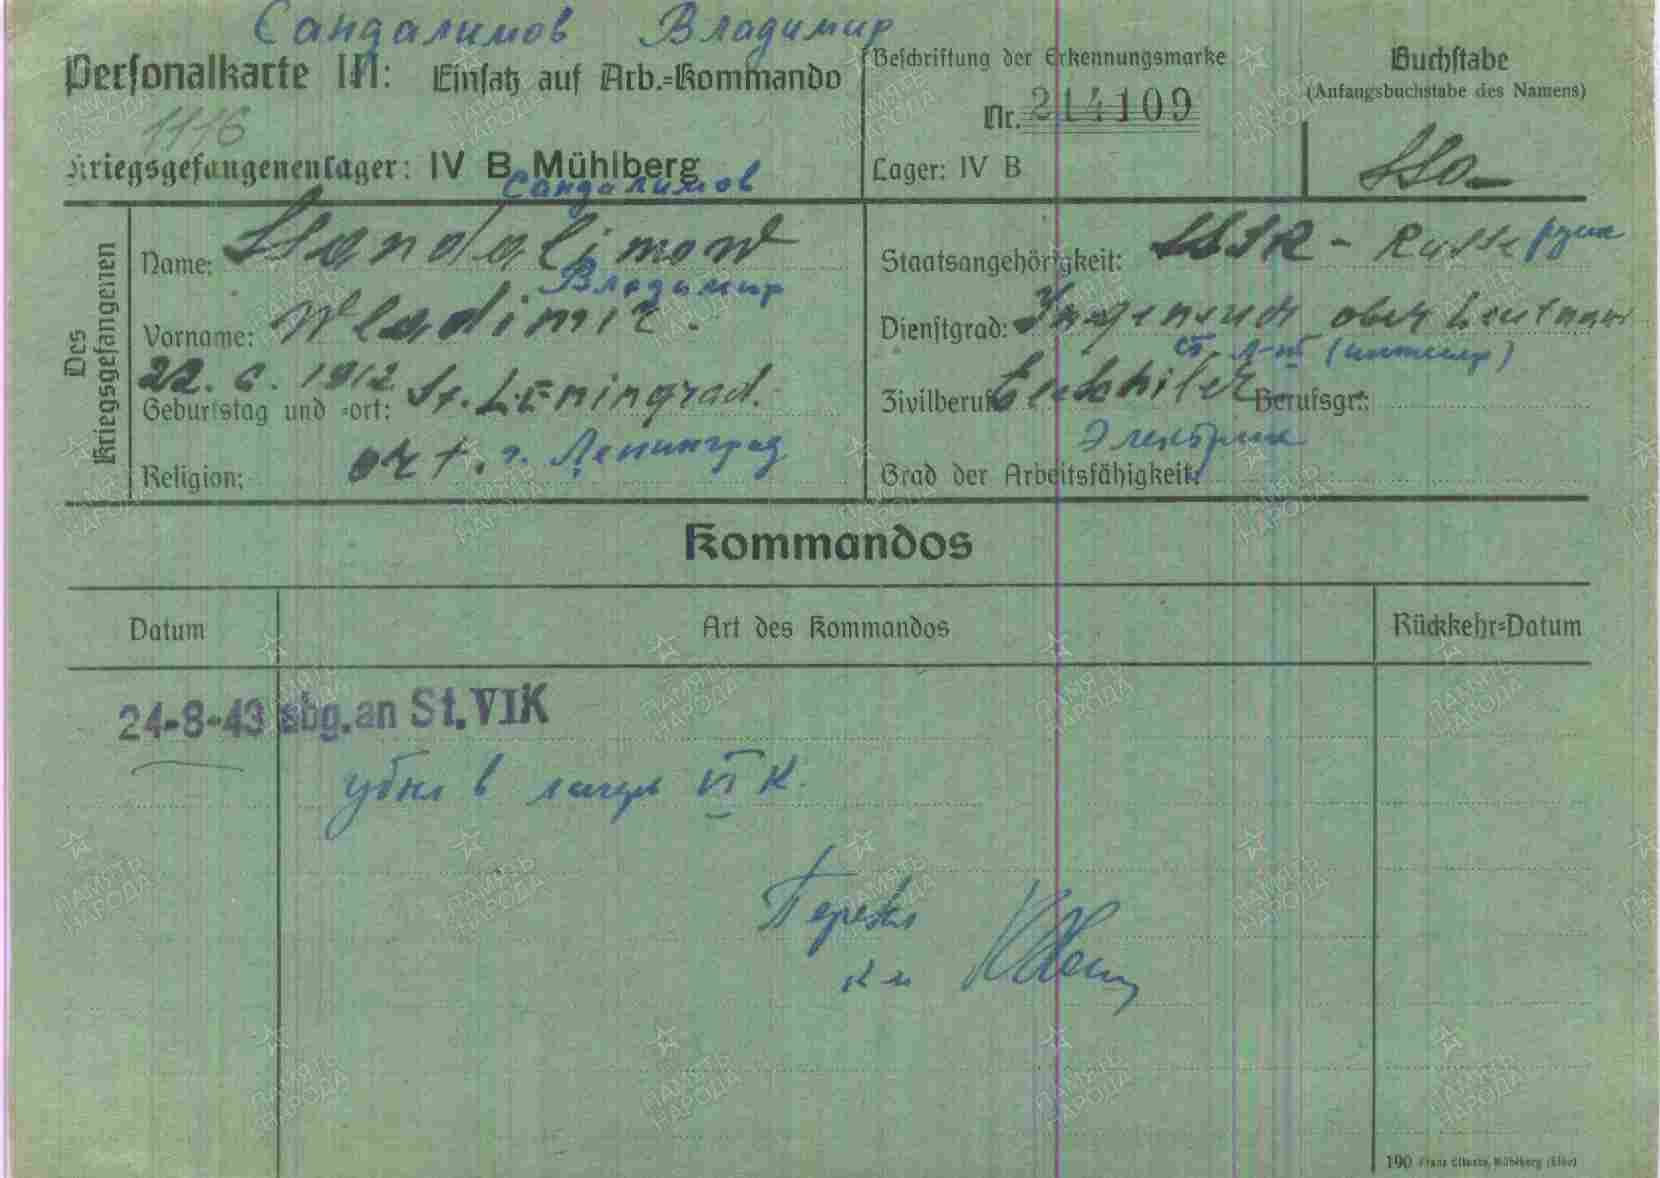 Сандалимов Владимир
Personalkarte III: Einsatz auf Arb.=Kommando
Beschriftung der Erkennungsmarke
Nr. 214109
Buchstabe
(Anfangsbuchstabe des Namens)
1116
Kriegsgefangenenlager: IV B Mühlberg
Lager: IV B
Сандалимов
Des Kriegsgefangenen
Name: Ssandalimow
Staatsangehörigkeit: SSSR - Russe
Владимир
Vorname: Wladimir.
Dienstgrad: ober Leutnant
ст. л-нт
22. 6. 1912 St. Leningrad.
Geburtstag und =ort:
Zivilberuf: Berufsgr.:
Электрик
Religion: ort. г. Ленинград
Grad der Arbeitsfähigkeit:
Kommandos
Datum Art des Kommandos Rückkehr=Datum
24-8-43 abg. an St. VIK
убыл в лагерь VI К.
Перевел
190 Mühlberg (Elbe)
ПАМЯТЬ НАРОДА